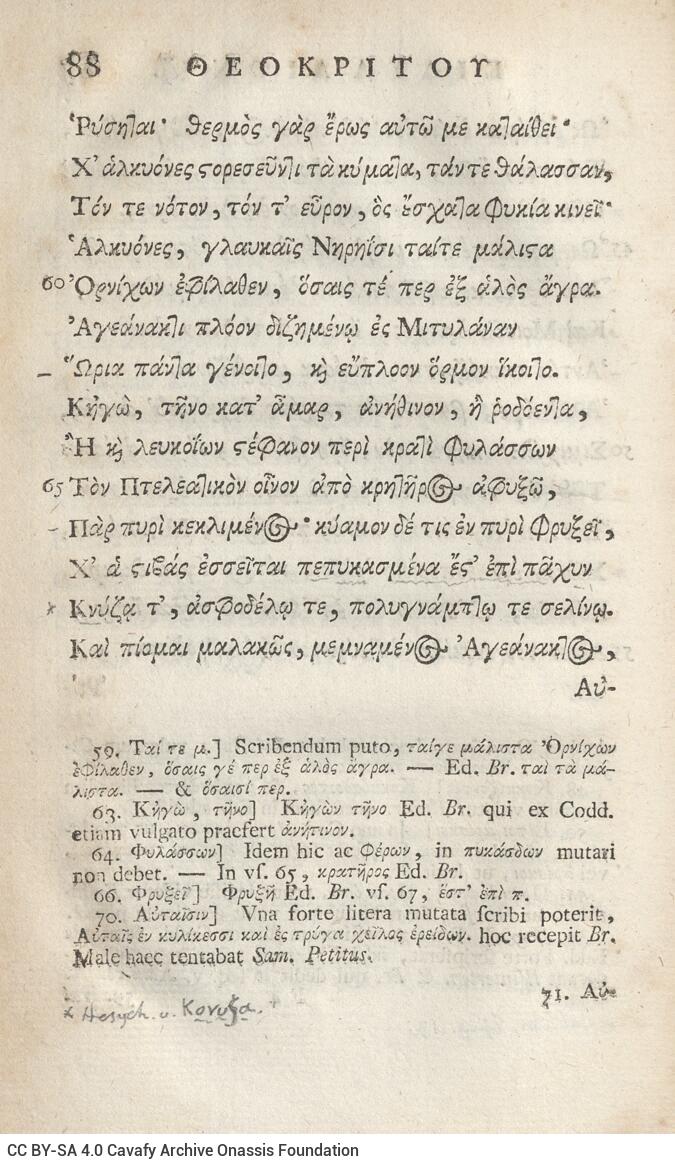 88 ΘΕΟΚΡΙΤΟΥ
Ῥύσηται· θερμὸς γὰρ ἔρως αὐτῶ με καταίθει·
Χ' ἁλκυόνες στορεσεῦντι τὰ κύματα, τάν τε θάλασσαν,
Τόν τε νότον, τόν τ' εὖρον, ὃς ἔσχατα φυκία κινεῖ·
Ἁλκυόνες, γλαυκαῖς Νηρηΐσι ταίτε μάλιστα
60 Ὀρνίχων ἐφίλαθεν, ὅσαις τέ περ ἐξ ἁλὸς ἄγρα.
Ἀγεάνακτι πλόον διζημένῳ ἐς Μιτυλάναν
Ὥρια πάντα γένοιτο, καὶ εὔπλοον ὅρμον ἵκοιτο.
Κἠγὼ, τῆνο κατ' ἆμαρ, ἀνήθινον, ἢ ῥοδόεντα,
Ἢ καὶ λευκοΐων στέφανον περὶ κρατὶ φυλάσσων
65 Τὸν Πτελεατικὸν οἶνον ἀπὸ κρητῆρος ἀφυξῶ,
Πὰρ πυρὶ κεκλιμένος· κύαμον δέ τις ἐν πυρὶ φρυξεῖ,
Χ' ἁ στιβάς ἐσσεῖται πεπυκασμένα ἔστ' ἐπὶ πᾶχυν
Κνύζᾳ τ', ἀσφοδέλῳ τε, πολυγνάμπτῳ τε σελίνῳ.
Καὶ πίομαι μαλακῶς, μεμναμένος Ἀγεάνακτος,
Αὐ-
59. Ταί τε μ.] Scribendum puto, ταίγε μάλιστα Ὀρνίχων
ἐφίλαθεν, ὅσαις γέ περ ἐξ ἁλὸς ἄγρα. — Ed. Br. ταὶ τὰ μά-
λιστα. — & ὅσαισί περ.
63. Κἠγὼ, τῆνο] Κἠγὼν τῆνο Ed. Br. qui ex Codd.
etiam vulgato praefert ἀνήτινον.
64. Φυλάσσων] Idem hic ac φέρων, in πυκάσδων mutari
non debet. — In vs. 65, κρατῆρος Ed. Br.
66. Φρυξεῖ] Φρυξῆ Ed. Br. vs. 67, ἔστ' ἐπὶ π.
70. Αὐταῖσιν] Vna forte litera mutata scribi poterit,
Αὐταῖς ἐν κυλίκεσσι καὶ ἐς τρύγα χεῖλος ἐρείδων. hoc recepit Br.
Male haec tentabat Sam. Petitus.
71. Αὐ-
x Hesych. v. Κονυζα.
CC BY-SA 4.0 Cavafy Archive Onassis Foundation